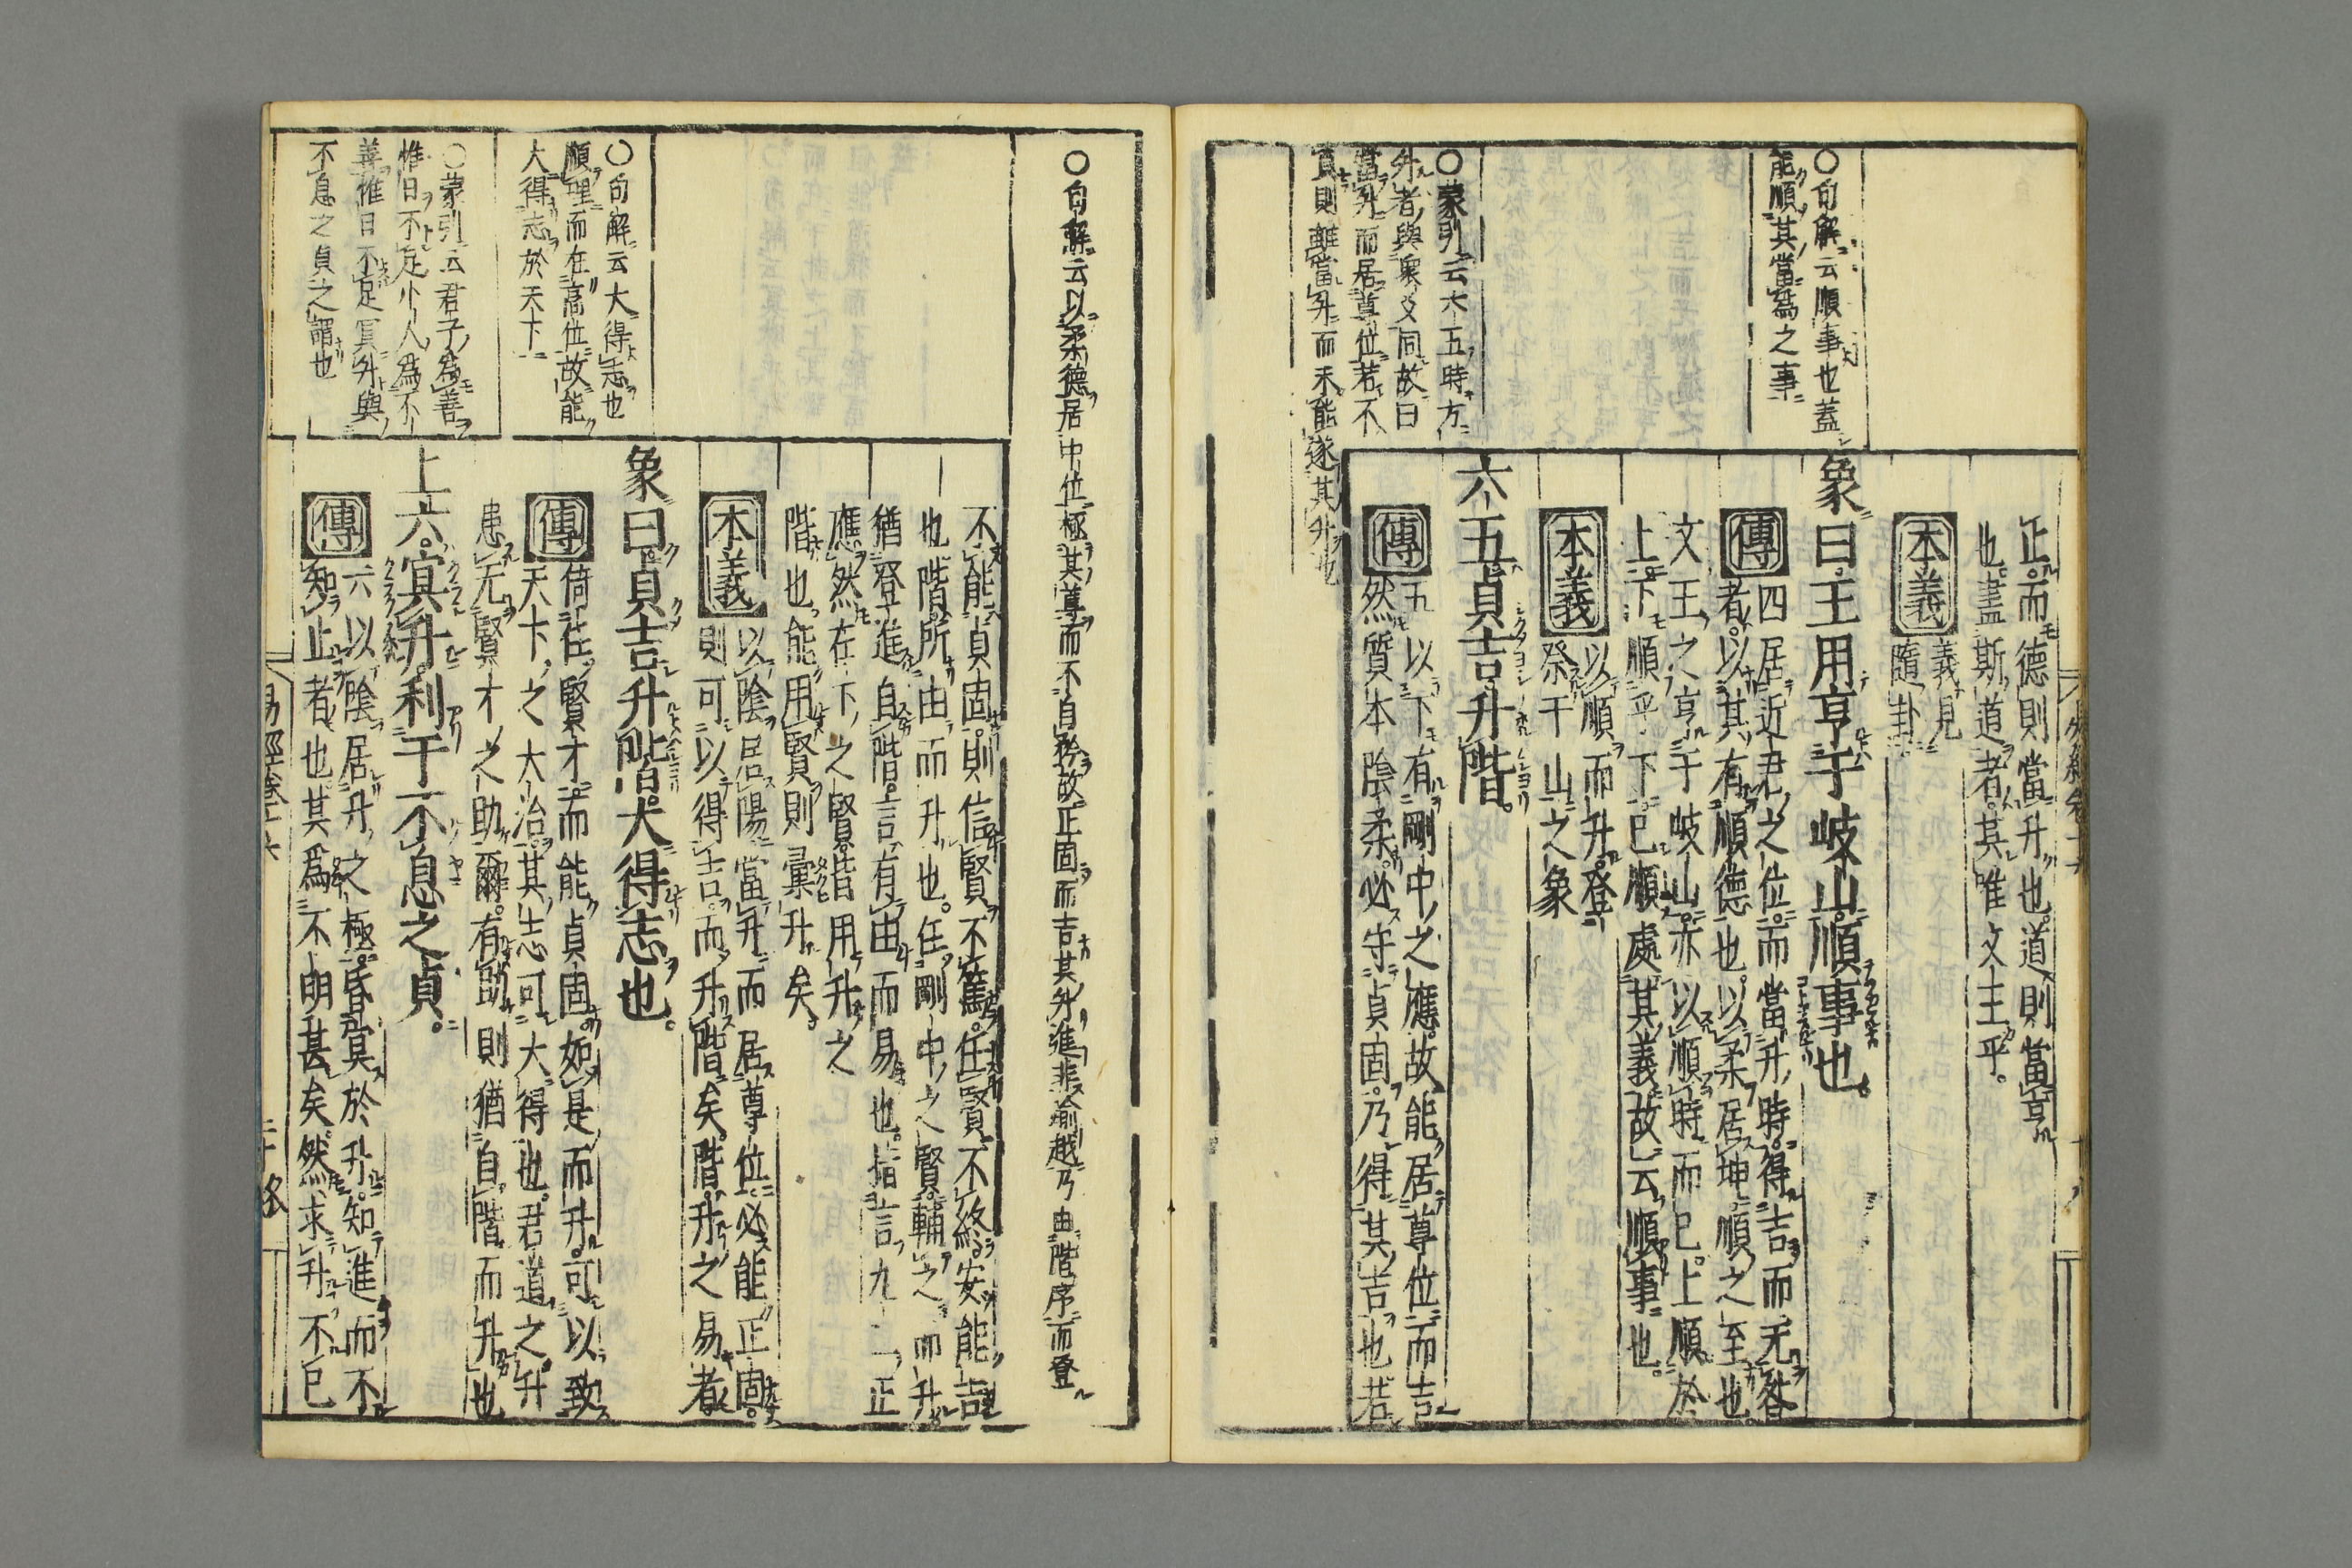 正而德則當升也道則當亨
也盡斯道者其唯文王乎
本義
義見
隨卦
象曰王用亨于岐山順事也
傳
四居近君之位而當升時得吉而无咎
者以其有順德也以柔居坤順之至也
文王之亨于岐山亦以順時而已上順於
上下順乎下已順處其義故云順事也
本義
以順而升登
祭于山之象
六五貞吉升階
傳
五以下有剛中之應故能居尊位而吉
然質本陰柔必守貞固乃得其吉也若
〇句解云順事也蓋
能順其當為之事
〇蒙引云六五時方
升者與衆爻同故曰
當升而居尊位若不
貞則雖當升而不能遂其升也
〇句解云以柔德居中位極其尊而不自矜故正固而吉其升進非踰越乃由階序而登
不能貞固則信賢不篤任賢不終安能吉
也階所由而升也任剛中之賢輔之而升
猶登進自階言有由而易也指言九二正
應然在下之賢皆用升之
階也能用賢則彙升矣
本義
以陰居陽當升而居尊位必能正固
則可以得吉而升階矣階升之易者
象曰貞吉升階大得志也
傳
倚任賢才而能貞固如是而升可以致
天下之大治其志可大得也君道之升
患无賢才之助爾有助則猶自階而升也
上六冥升利于不息之貞
傳
六以陰居升之極昏冥於升知進而不
知止者也其為不明甚矣然求升不已
〇句解云大得志也
順理而在高位故能
大得志於天下
〇蒙引云君子為善
惟日不足小人為不
善惟日不足冥升與
不息之貞之謂也